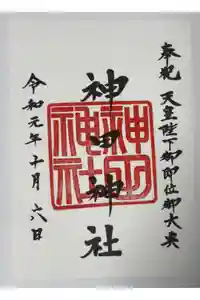 奉祝 天皇陛下御即位御大典
神田神社
神田神社
令和元年十月六日